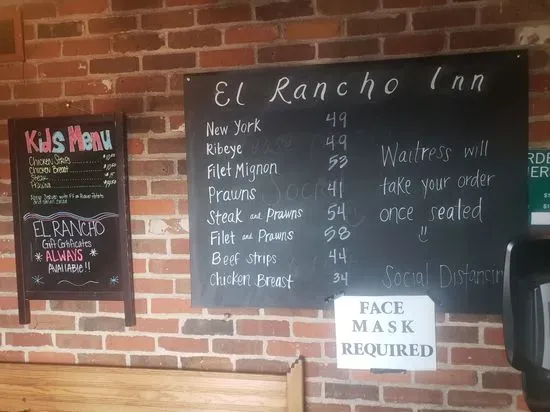 Kids Menu
Chicken Strips
Chicken Breast
Steak
Prawns
EL RANCHO
Gift Certificates
ALWAYS
AVAILABLE!!
El Rancho Inn
New York 49
Ribeye 49
Filet Mignon 53
Prawns 41
Steak and Prawns 54
Filet and Prawns 58
Beef strips 44
Chicken Breast 34
Waitress will
take your order
once seated
Social Distancin
FACE
MASK
REQUIRED